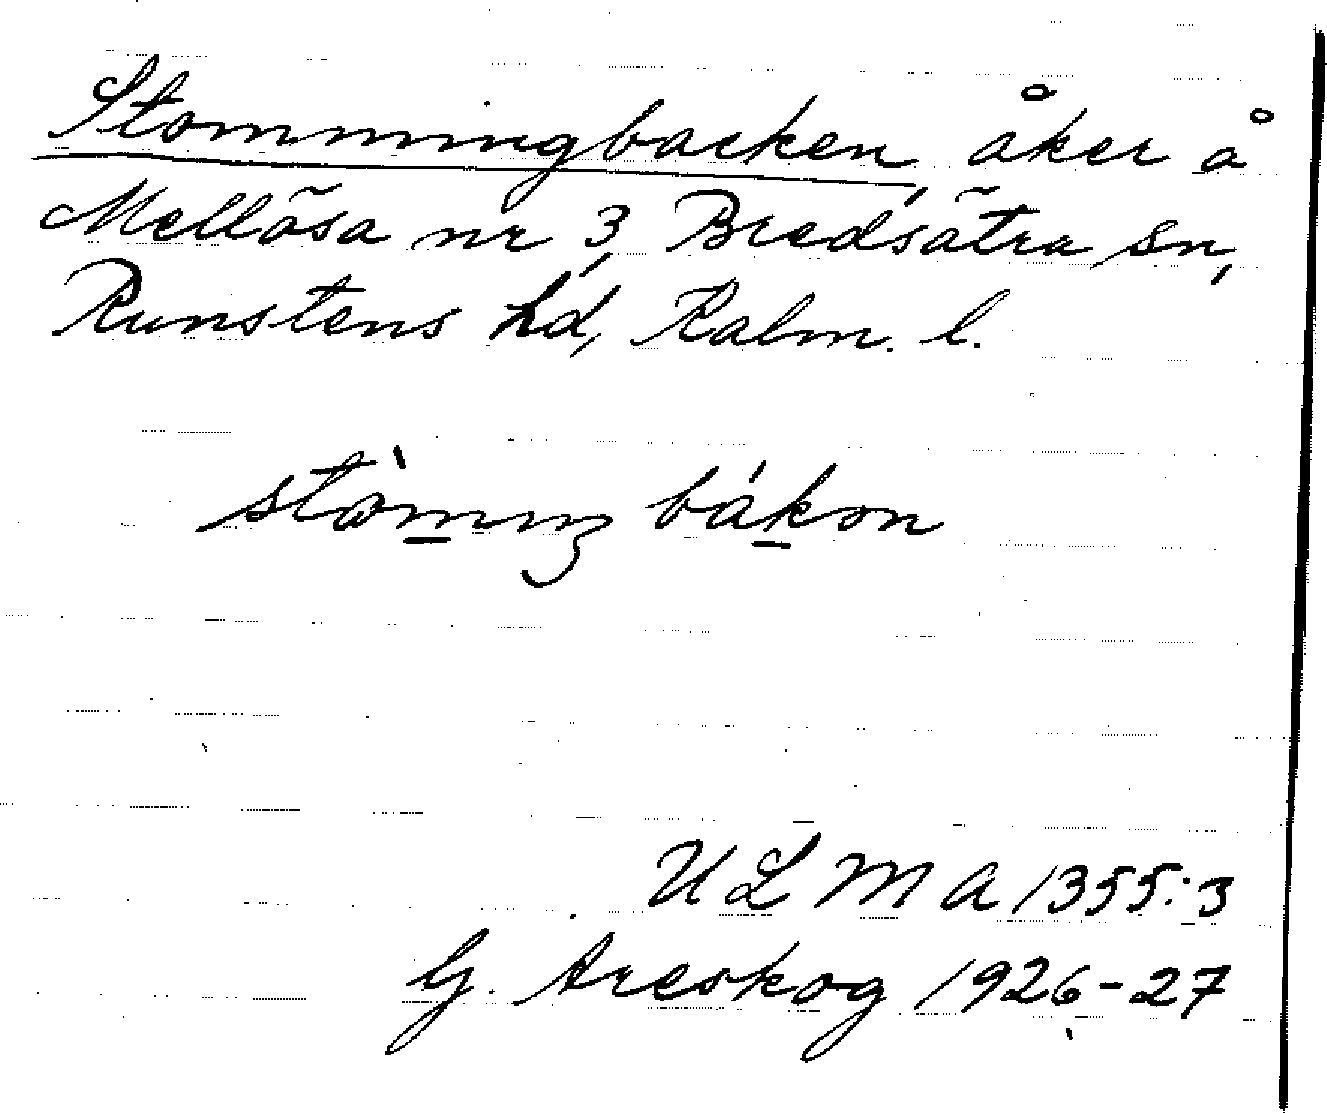 Stommingbacken, åker å
Mellösa nr 3, Bredsätra sn,
Runstens hd, Kalm. l.
stòmıŋ bákon
ULMA 1355:3
G. Areskog 1926-27